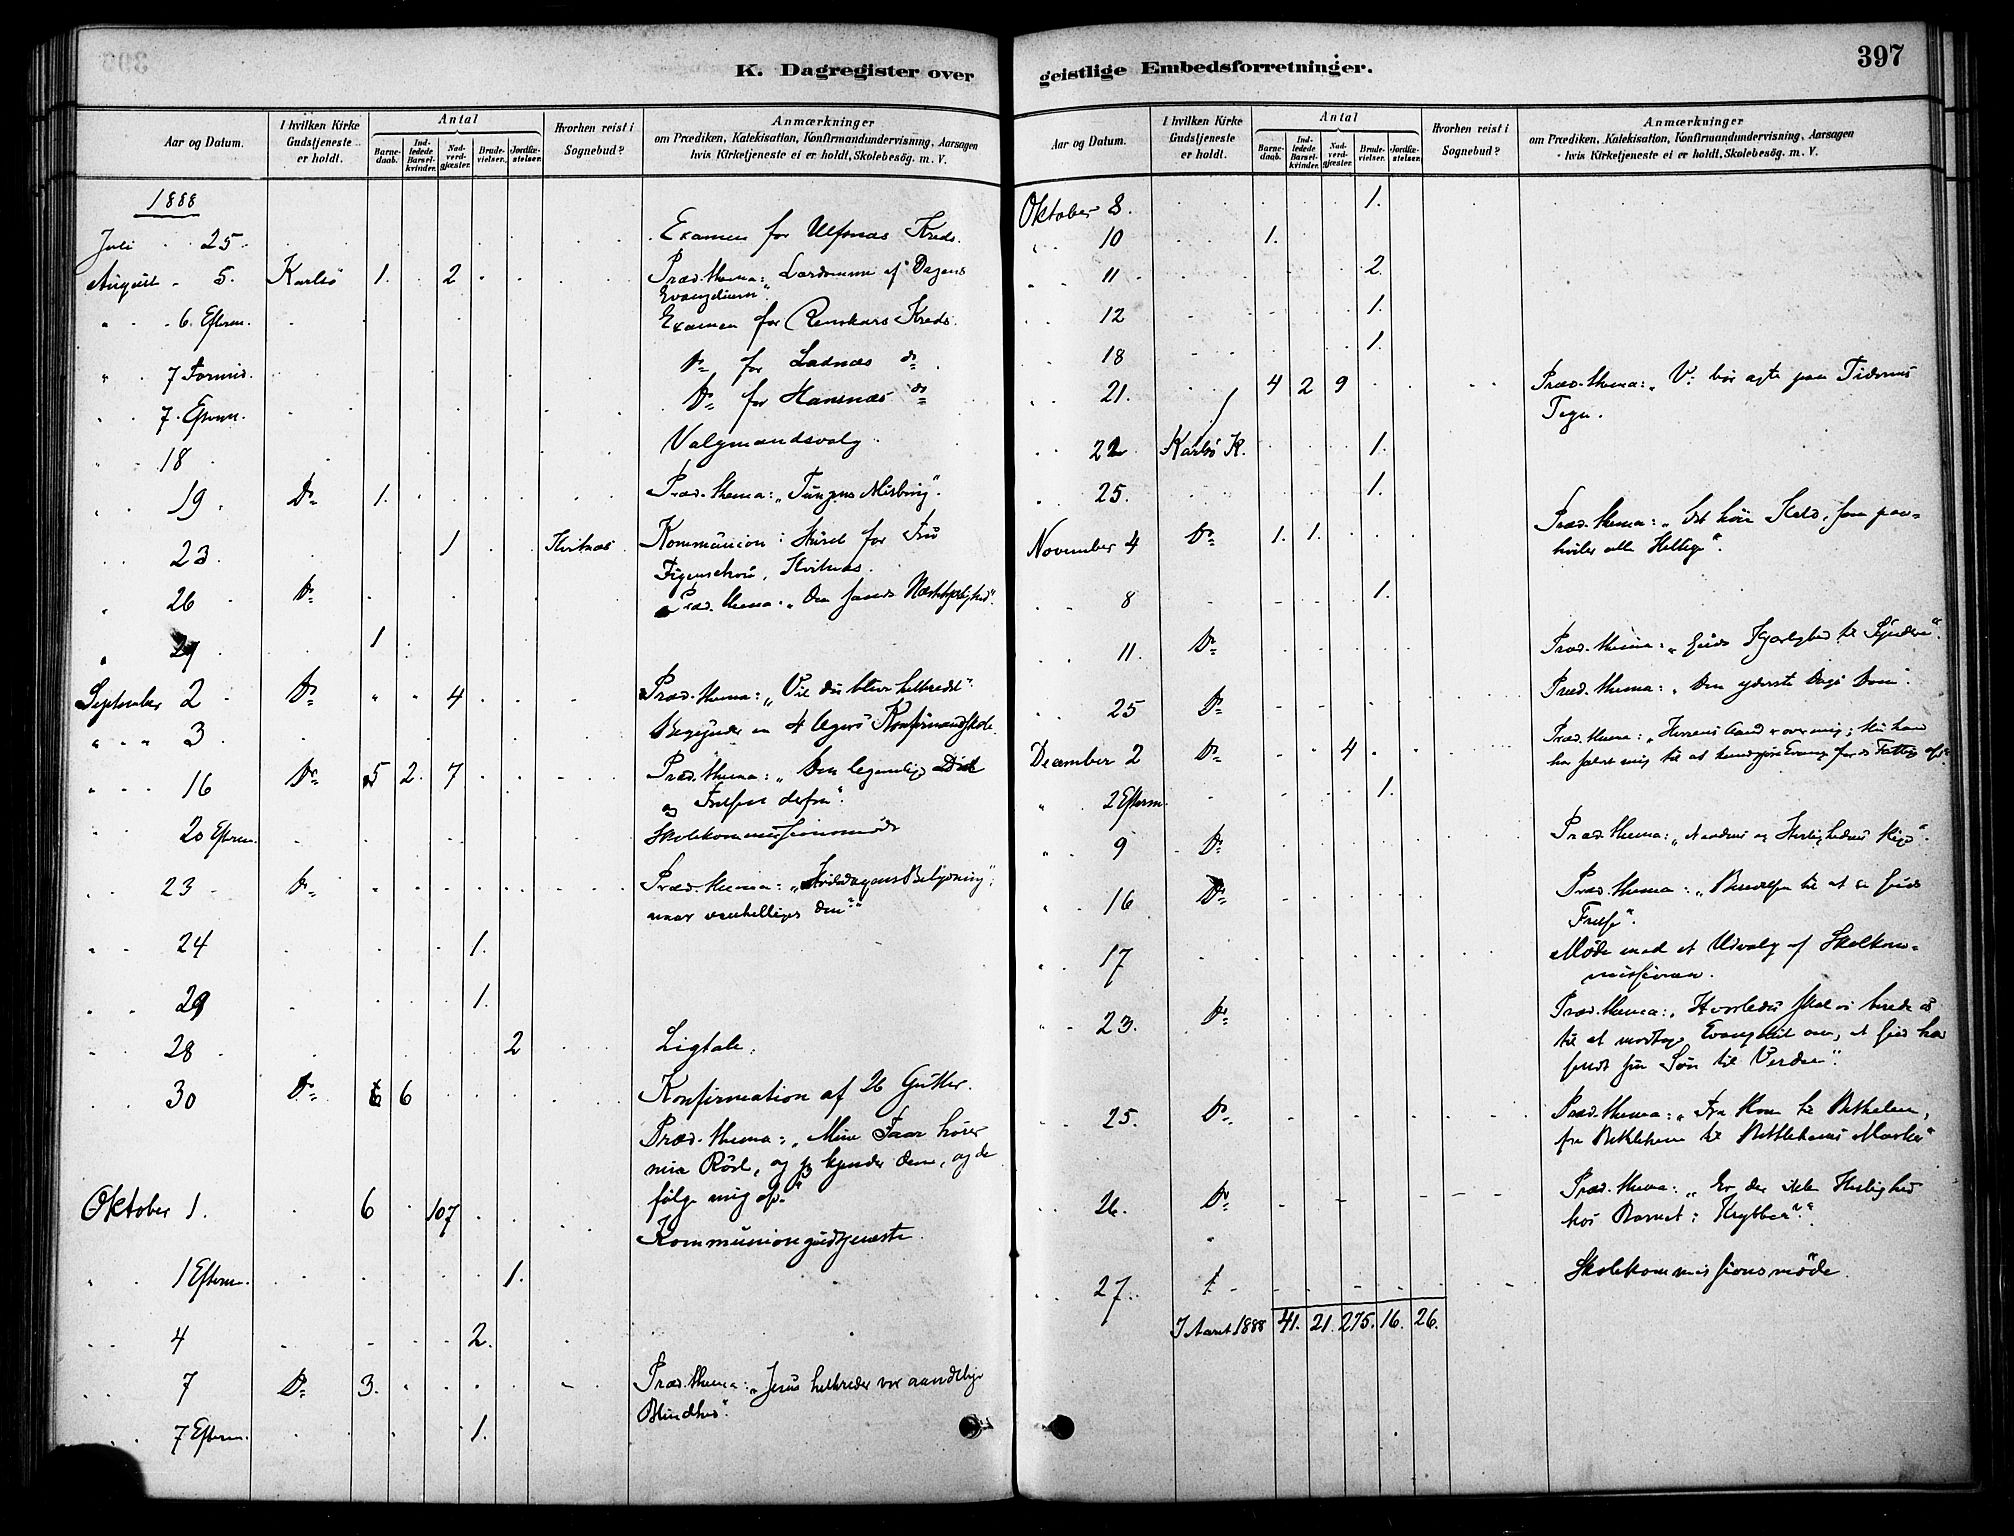 K. Dagregister over
geistlige Embedsforretninger.
397
Aar og Datum.
I hvilken Kirke Gudstjeneste er holdt.
Antal
Barne-daab.
Ind-ledede Barsel-kvinder.
Nad-verd-gjæster.
Brude-vielser.
Jordfæ-stelser.
Hvorhen reist i Sognebud?
Anmærkninger
om Prædiken, Katekisation, Konfirmandundervisning, Aarsagen
hvis Kirketjeneste ei er holdt, Skolebesög. m. V.
1888
Juli 25. Examen for Ulfsnæs Kreds.
August 5. Karlsö 1. 2 Præd. thema: Lærdomme af Dagens
Evangelium".
" 6. Efterm. Examen for Kreds.
" 7 Formid. Do for Do
7. Efterm. Do for Hansnæs Do
18 Valgmandsvalg.
19 Do 1. Præd. thema: „Tungens Misbrug".
23 1 Hvitnæs Kommunion i Huset for Fru
Figenschou, Hvitnæs.
26 Do Præd. thema: „Den sande Næstekjærlighed".
29 1
September 2 Do " " 4 Præd. thema: „Vil du blive helbredet".
" " " 3 Begynder en 4 Ugers Konfirmandskole.
16 Do 5 2. 7 Præd. thema: „Den legemlige Död
og Frelsen derfra".
20 Efterm. Skolekommissionsmöde
23 Do Præd. thema: „Hviledagens Betydning;
naar vanhelliges den?"
24 1.
29 1.
28 2 Ligtale.
30 Do 6 6 Konfirmation af 26 Gutter.
Præd. thema: „Mine Faar hører
min Röst, og jeg kjender dem, og de
følge mig ef."
Oktober 1. 6 107 Kommunionsgudstjeneste.
1 Efterm. 1.
4 2.
7 Do 3. Præd. thema: „Jesus helbreder vor aandelige
Blindhed".
7 Efterm. 1.
Aar og Datum.
I hvilken Kirke Gudstjeneste er holdt.
Antal
Barne-daab.
Ind-ledede Barsel-kvinder.
Nad-verd-gjæster.
Brude-vielser.
Jordfæ-stelser.
Hvorhen reist i Sognebud?
Anmærkninger
om Prædiken, Katekisation, Konfirmandundervisning, Aarsagen
hvis Kirketjeneste ei er holdt, Skolebesög. m. V.
Oktober 8. 1.
10 1.
11 2.
12 1.
18 1.
21. 4 2 9 Præd. thema: „Vi bör agte paa Tidernes
Tegn.
22 Karlsö K. 1.
25. 1.
November 4 Do 1. 1. Præd. thema: „Det høie Kald, som paa-
hviler alle Hellige".
8 1.
11. Do Præd. thema: „Guds Kjærlighed til Syndere".
25 Do Præd. thema: „Den yderste Dags Dom".
December 2 Do 4 Præd. thema: „Herrens Aand er over mig; thi han
har salvet mig til at kundgjöre Evang. for de Fattige
" 2 Efterm. 1.
9 Do Præd. thema: „Naadens og Herlighedens Rige".
16 Do Præd. thema: „ til at se Guds
Frelse".
17 Möde med et Udvalg af Skolekom-
missionen.
23. Do Præd. thema: „Hvorledes skal vi berede os
til at modtage Evangeliet om, at Gud har
sendt sin Sön til Verden".
25. Do Præd. thema: „Fra Rom til Bethlehem,
fra Bethlehem til Bethlehems Marker"
26. Do Præd. thema: „Er der ikke Herlighed
hos Barnet i Krybben?"
27. Skolekommissionsmöde.
I Aaret 1888 41. 21. 275. 16. 26.